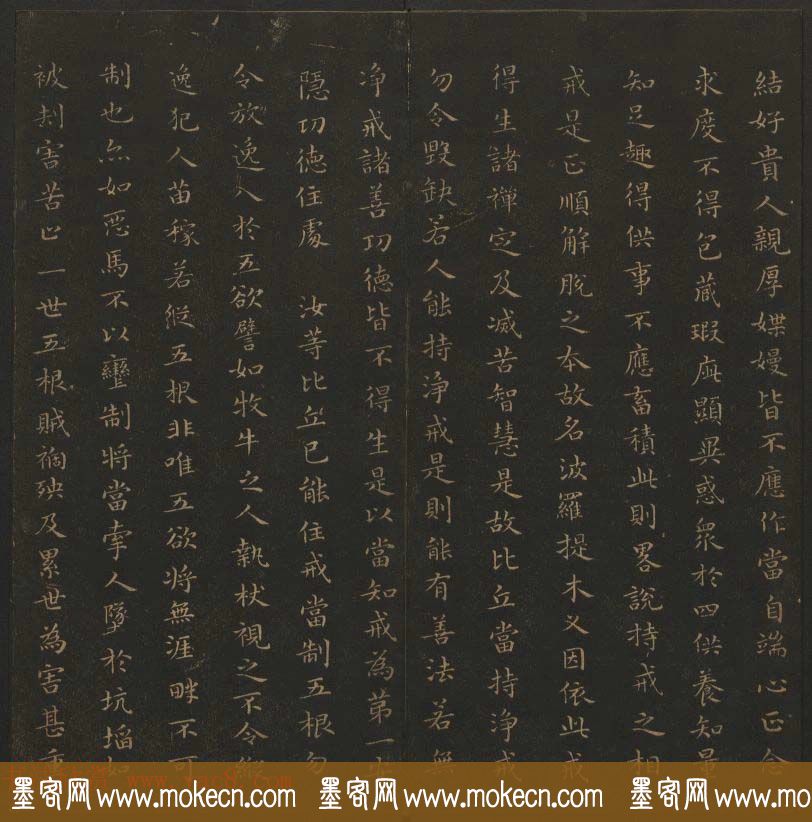 結好貴人親厚媟嫚皆不應作當自端心正念
求度不得包藏瑕疵顯異惑衆於四供養知量
知足趣得供事不應畜積此則畧說持戒之相
戒是正順解脫之本故名波羅提木叉因依此戒
得生諸禪定及滅苦智慧是故比丘當持淨戒
勿令毀缺若人能持淨戒是則能有善法若無
淨戒諸善功德皆不得生是以當知戒為第一安
隱功德住處 汝等比丘已能住戒當制五根勿
令放逸入於五欲譬如牧牛之人執杖視之不令縱
逸犯人苗稼若縱五根非唯五欲將無涯畔不可
制也亦如惡馬不以轡制將當牽人墜於坑埳如
被刦害苦止一世五根賊禍殃及累世為害甚重
墨客网 www.mokecn.com 墨客网 www.mokecn.com 墨客网 www.mokecn.com